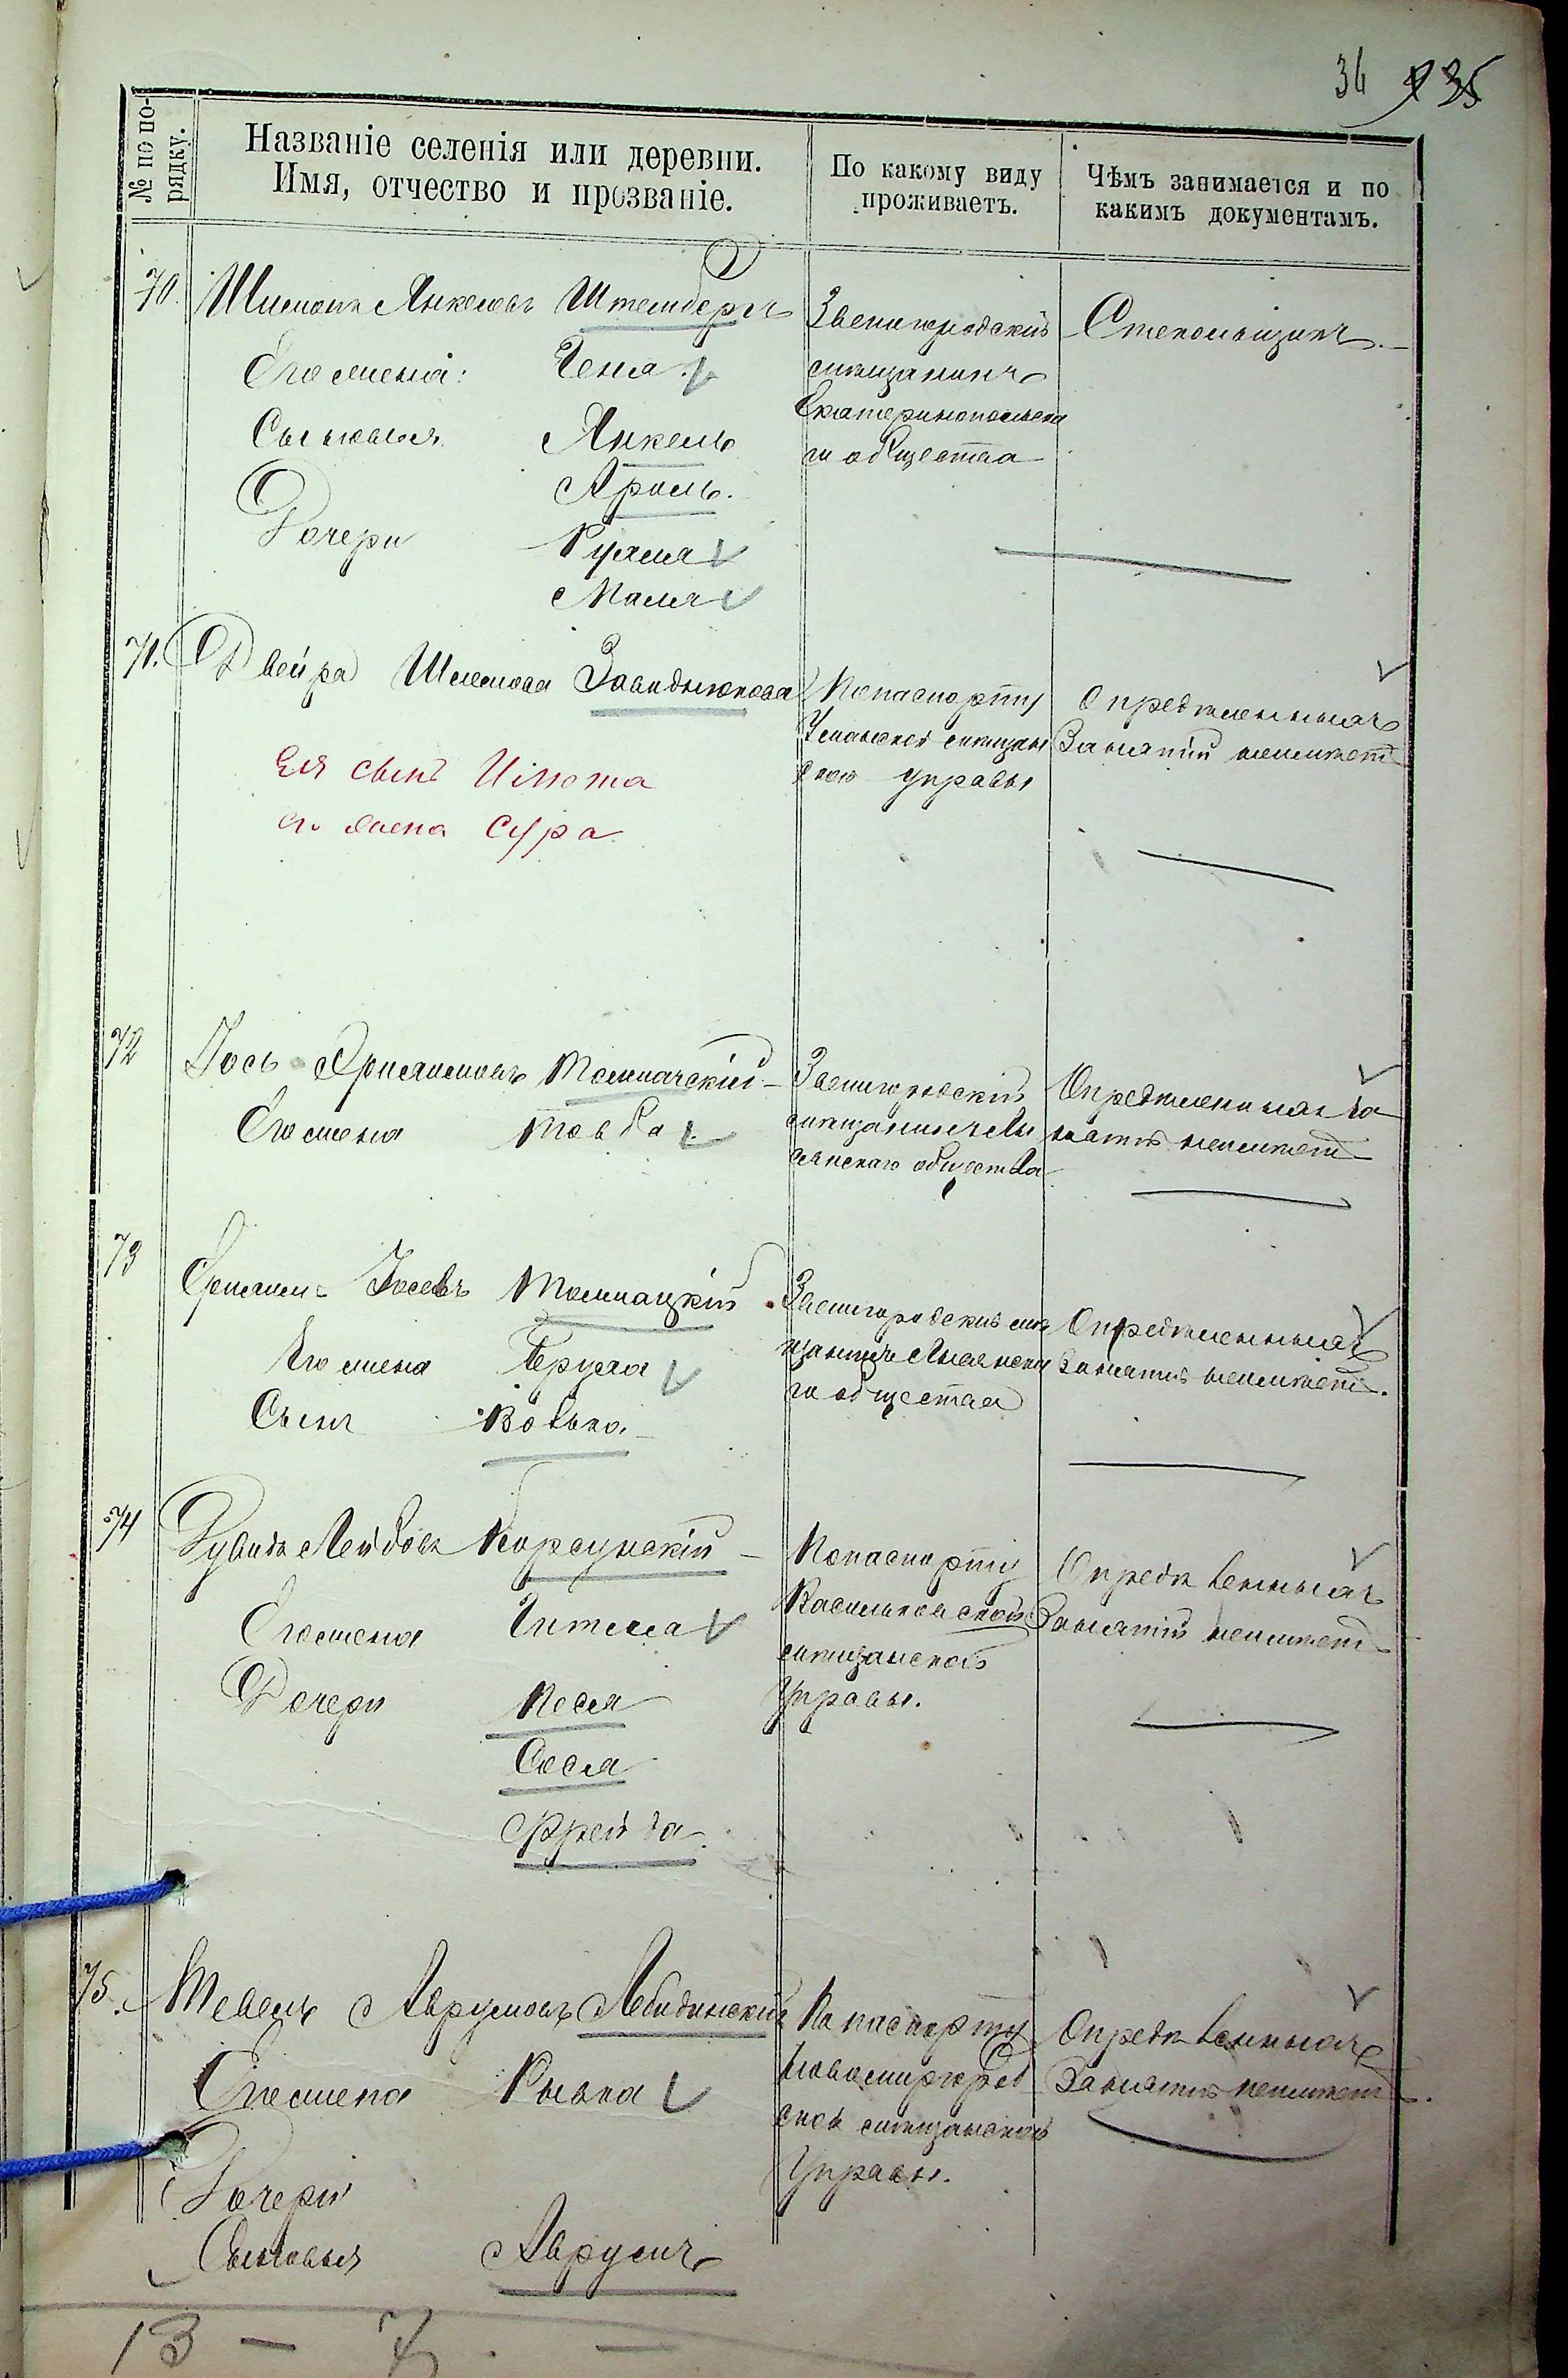 36 35
№ по по-
рядку.
Названіе селенія или деревни.
Имя, отчество и прозваніе.
По какому виду
проживаетъ.
Чѣмъ занимается и по
какимъ документамъ.
70. Шимонъ Янкелевъ Штемберъ
Его жена: Гена
Сыновья Янкель
Аронь.
Дочери Рухля
Маля
Звенигородскій
мѣщанинъ
Екатеринопольска
го общества
Стекольщикъ.
71. Двейра Шлемова Завидыонова
Ея сынъ
его жена Сура
По паспорту
Уманской мѣщан
ской управы
Опредѣленныхъ
Занятій неимѣетъ
72 Іось Сруляшовъ Толмачскій
Его жена Товба
Звенигородскій
мѣщанинъ Лы
сянскаго общества
Опредѣленныхъ за
нятій неимѣетъ
73 Сруль Іосевъ Толмацкій
Его жена Перуха
Сынъ Волько
Звенигородскій мѣ
щанинъ Лысянска
го общества
Опредѣленныхъ
Занятій неимѣетъ.
74 Рувинъ Лейбовъ Корсунскій
Его жена Гитля
Дочери Песя
Сося
Фрейда
По паспорту
Васильковской
мѣщанской
Управы.
Опредѣленныхъ
Занятій неимѣетъ
75. Тевель Аврумовъ Лебидинскій
Его жена Рывка
Дочери
Сыновья Аврумъ
По паспорту
Новомиргород
ской мѣщанской
Управы.
Опредѣленныхъ
Занятій неимѣетъ.
13 — 7. —